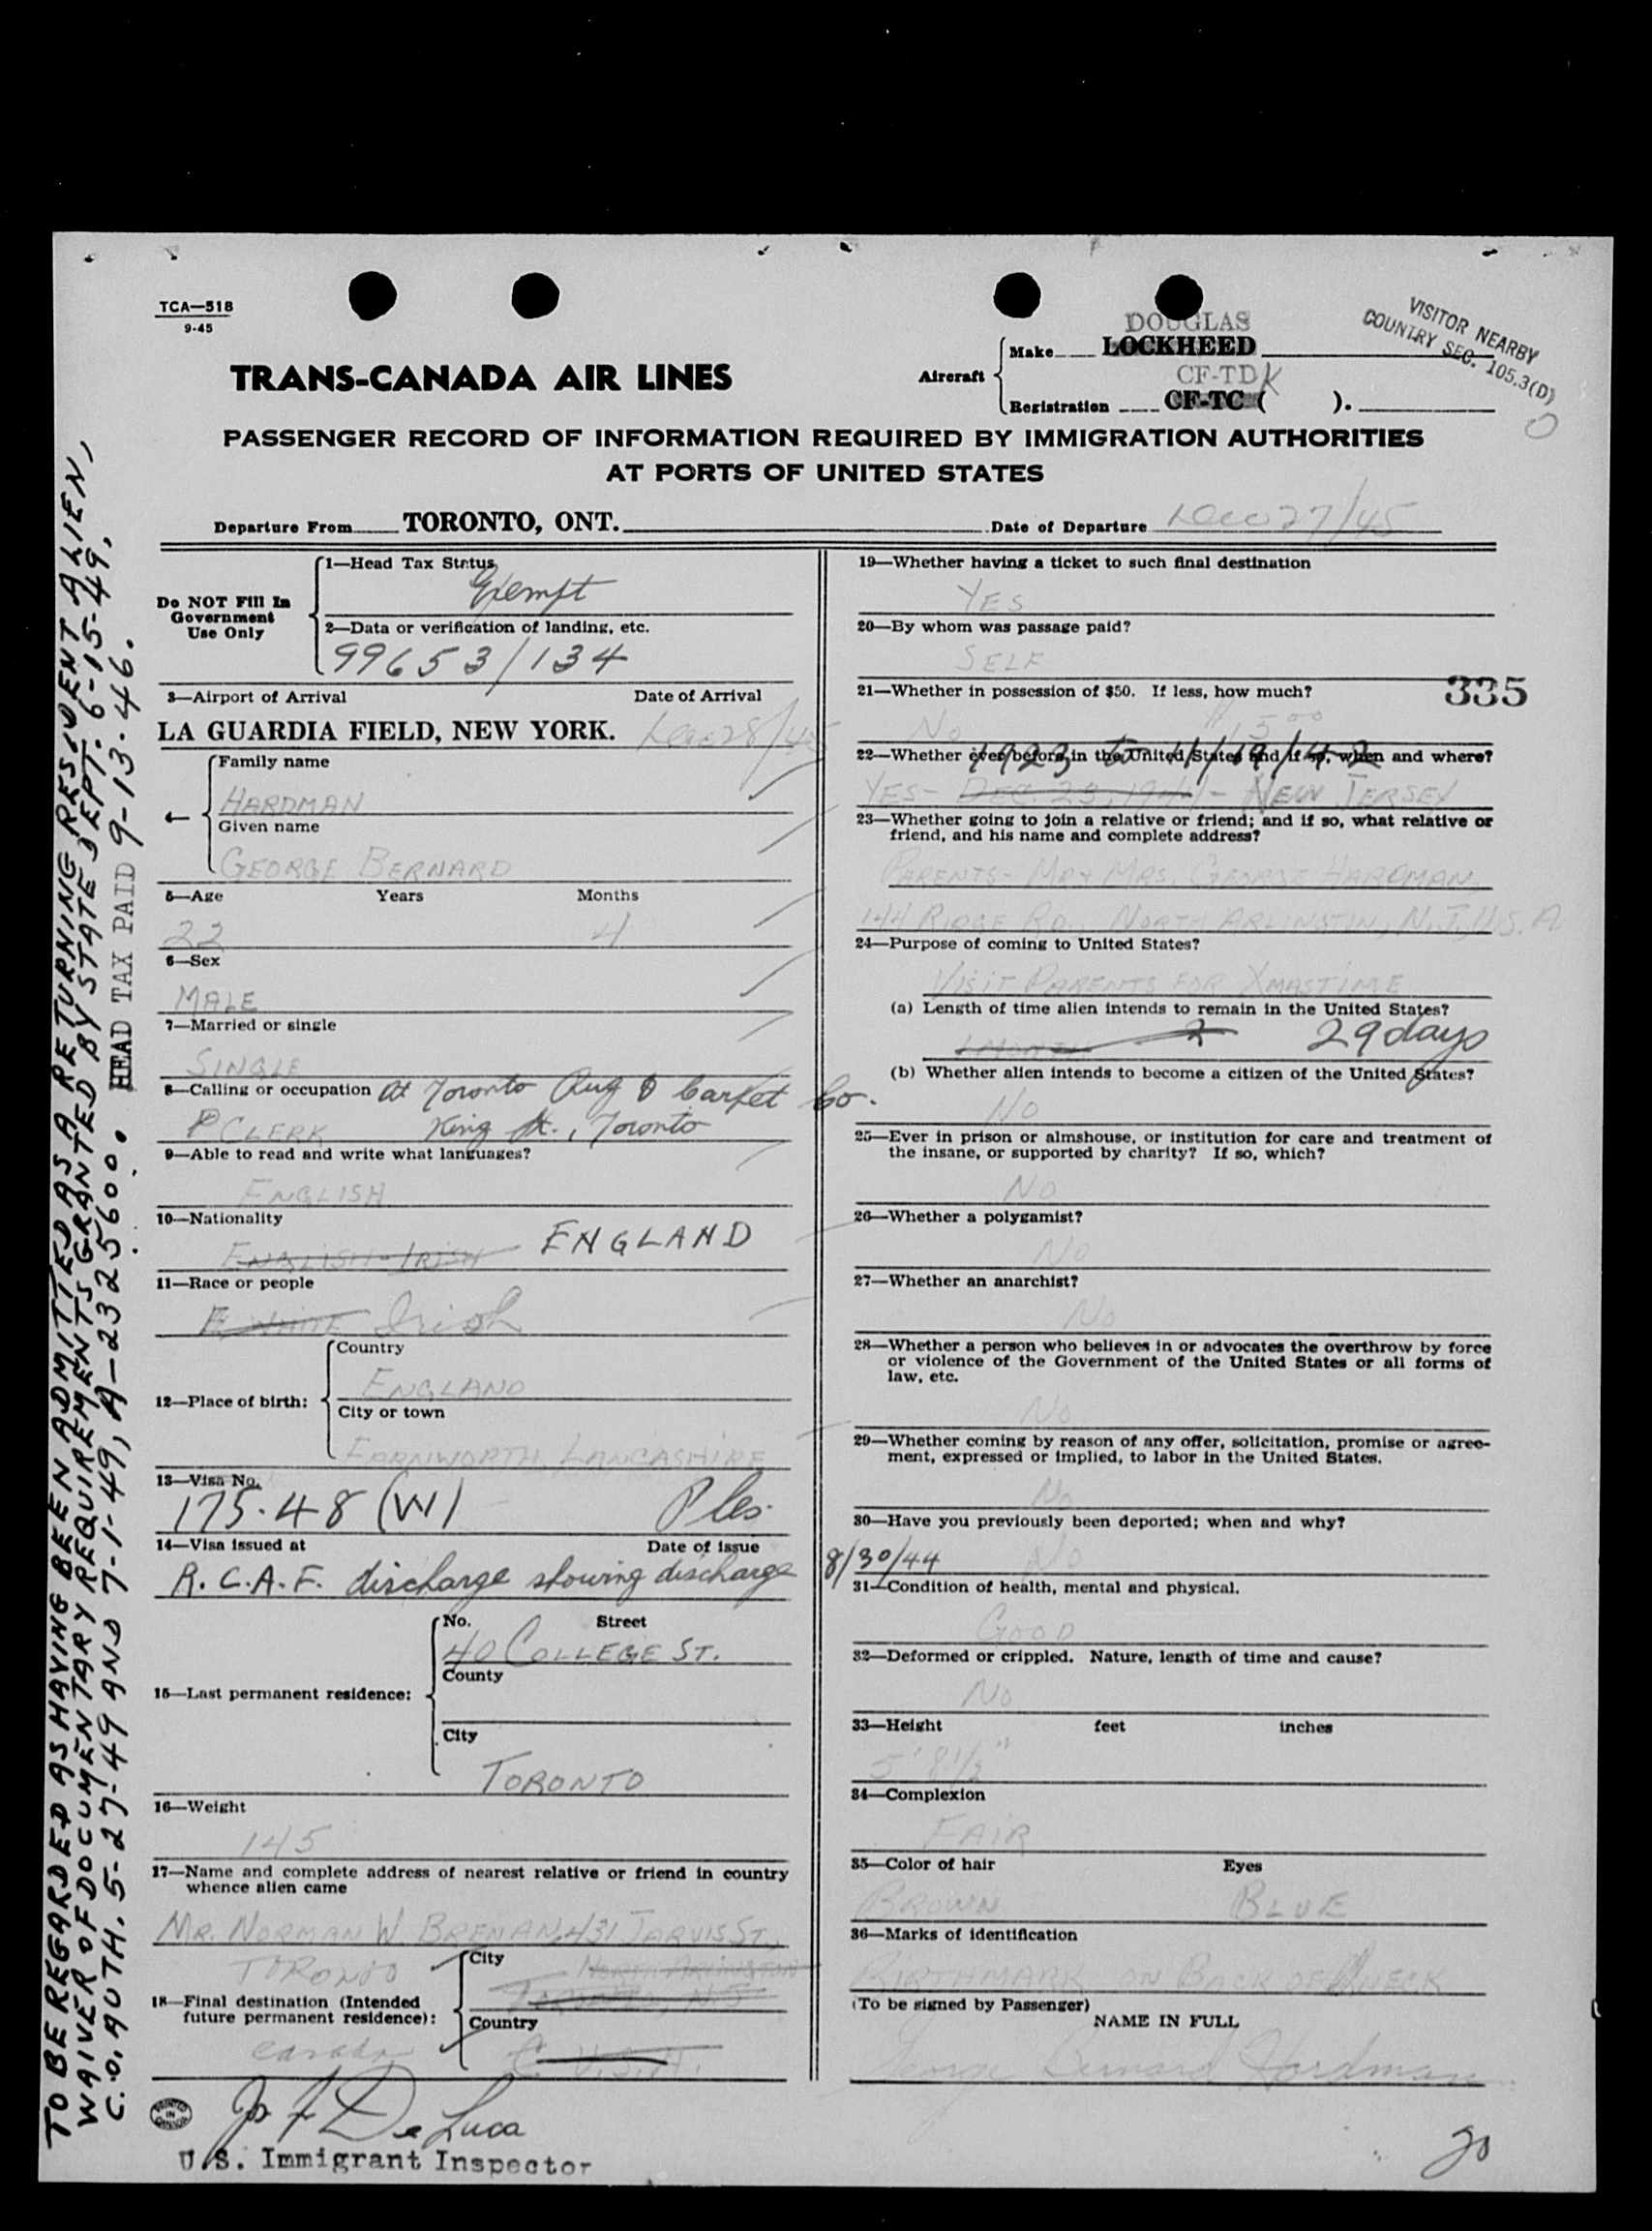 TCA—518
9-45
TRANS-CANADA AIR LINES
Aircraft
Make
DOUGLAS
LOCKHEED
Registration
CF-TDK
CF-TC ( ).
VISITOR NEARBY
COUNTRY SEC. 105.3(D)
0
PASSENGER RECORD OF INFORMATION REQUIRED BY IMMIGRATION AUTHORITIES
AT PORTS OF UNITED STATES
Departure From TORONTO, ONT. Date of Departure Dec 27/45
Do NOT Fill In
Government
Use Only
1—Head Tax Status
Exempt
2—Data or verification of landing, etc.
99653/134
3—Airport of Arrival Date of Arrival
LA GUARDIA FIELD, NEW YORK. Dec 28/45
Family name
HARDMAN
Given name
GEORGE BERNARD
5—Age Years Months
22 4
6—Sex
MALE
7—Married or single
SINGLE
8—Calling or occupation At Toronto Rug & Carpet Co.
CLERK King St., Toronto
9—Able to read and write what languages?
ENGLISH
10—Nationality
ENGLISH-IRISH ENGLAND
11—Race or people
WHITE Irish
12—Place of birth:
Country
ENGLAND
City or town
FARNWORTH, LANCASHIRE
13—Visa No.
175.48 (W)
14—Visa issued at Date of issue
R.C.A.F. discharge showing discharge 8/30/44
15—Last permanent residence:
No. Street
40 COLLEGE ST.
County
City
TORONTO
16—Weight
145
17—Name and complete address of nearest relative or friend in country
whence alien came
MR. NORMAN W. BRENAN, 431 JARVIS ST.,
TORONTO
18—Final destination (Intended
future permanent residence):
City
NORTH ARLINGTON
TORONTO, N.J.
Country
Canada
U.S.A.
PRINTED IN CANADA
De Luca
U.S. Immigrant Inspector
19—Whether having a ticket to such final destination
YES
20—By whom was passage paid?
SELF
21—Whether in possession of $50. If less, how much?
335
No 15 00
22—Whether ever before in the United States and if so, when and where?
1923 to 11/19/42
YES- DEC. 23, 1944 - NEW JERSEY
23—Whether going to join a relative or friend; and if so, what relative or
friend, and his name and complete address?
PARENTS- MR & MRS. GEORGE HARDMAN
144 RIDGE RD., NORTH ARLINGTON, N.J., U.S.A
24—Purpose of coming to United States?
VISIT PARENTS FOR XMASTIME
(a) Length of time alien intends to remain in the United States?
1 MONTH 29 days
(b) Whether alien intends to become a citizen of the United States?
NO
25—Ever in prison or almshouse, or institution for care and treatment of
the insane, or supported by charity? If so, which?
NO
26—Whether a polygamist?
NO
27—Whether an anarchist?
No
28—Whether a person who believes in or advocates the overthrow by force
or violence of the Government of the United States or all forms of
law, etc.
NO
29—Whether coming by reason of any offer, solicitation, promise or agree-
ment, expressed or implied, to labor in the United States.
No
30—Have you previously been deported; when and why?
No
31—Condition of health, mental and physical.
GOOD
32—Deformed or crippled. Nature, length of time and cause?
NO
33—Height feet inches
5' 8 1/2"
34—Complexion
FAIR
35—Color of hair Eyes
BROWN BLUE
36—Marks of identification
BIRTHMARK ON BACK OF NECK
(To be signed by Passenger)
NAME IN FULL
George Bernard Hardman
20
TO BE REGARDED AS HAVING BEEN ADMITTED AS A RETURNING RESIDENT ALIEN,
WAIVER OF DOCUMENTARY REQUIREMENTS GRANTED BY STATE DEPT. 6-15-49,
C.O. AUTH. 5-27-49 AND 7-1-49, A-2325600. HEAD TAX PAID 9-13-46.